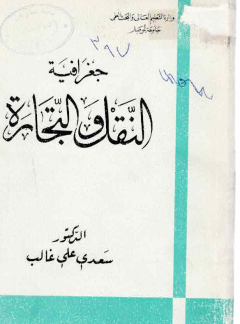 وزارة التعليم العالي والبحث العلمي
٣٩٧
جغرافية
النقل والتجارة
الدكتور
سعدي علي غالب